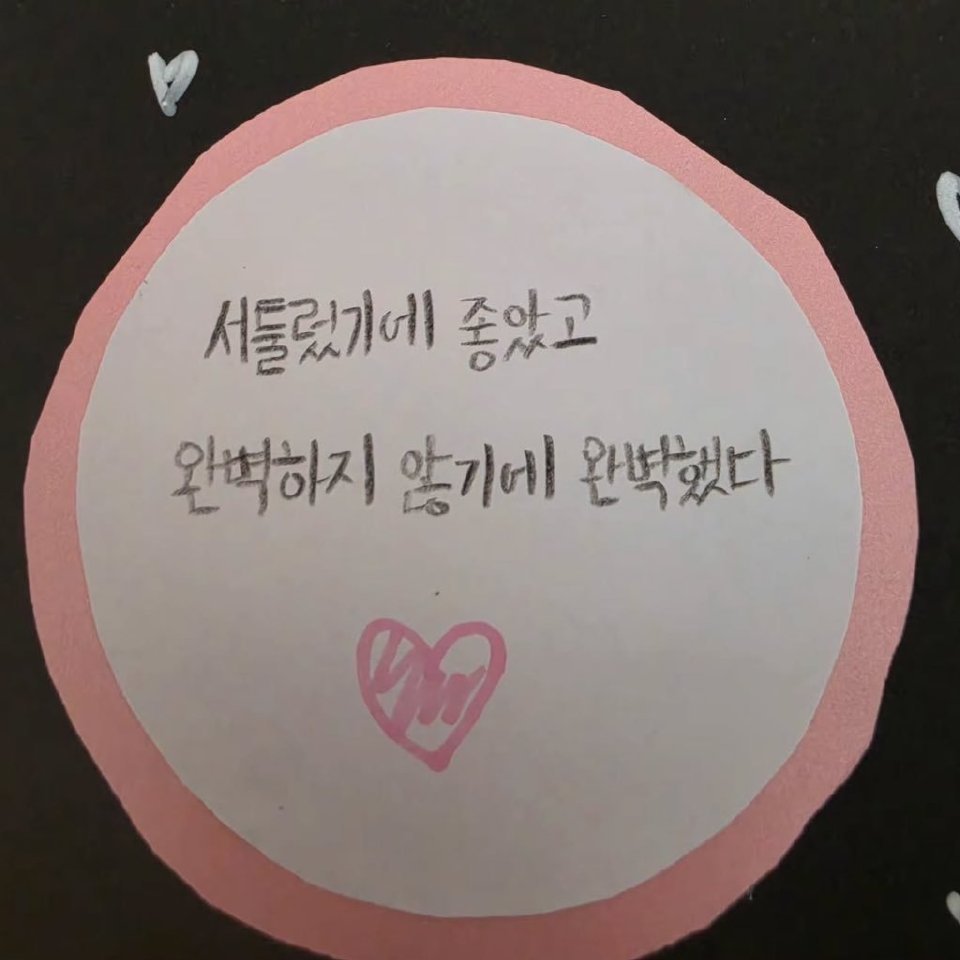 서툴렀기에 좋았고
완벽하지 않기에 완벽했다